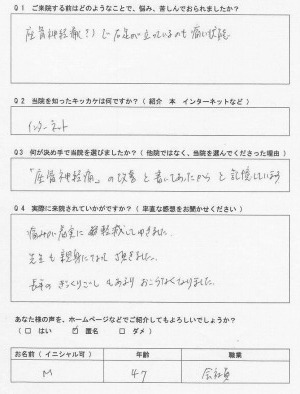 Q1 ご来院する前はどのようなことで、悩み、苦しんでおられましたか?
座骨神経痛?)で右足が立っているのも痛い状態
Q2 当院を知ったキッカケは何ですか?(紹介 本 インターネットなど)
インターネット
Q3 何が決め手で当院を選びましたか?(他院ではなく、当院を選んでくださった理由)
「座骨神経痛」の改善と書いてあったからと記憶している
Q4 実際に来院されていかがですか?(率直な感想をお聞かせください)
痛みが着実に軽減してゆきました。
先生も親身になって頂きました。
長年のぎっくりごしもあまりおこらなくなりました。
あなた様の声を、ホームページなどでご紹介してもよろしいでしょうか?
(□ はい ☑ 匿名 □ ダメ)
お名前(イニシャル可) 年齢 職業
M 47 会社員